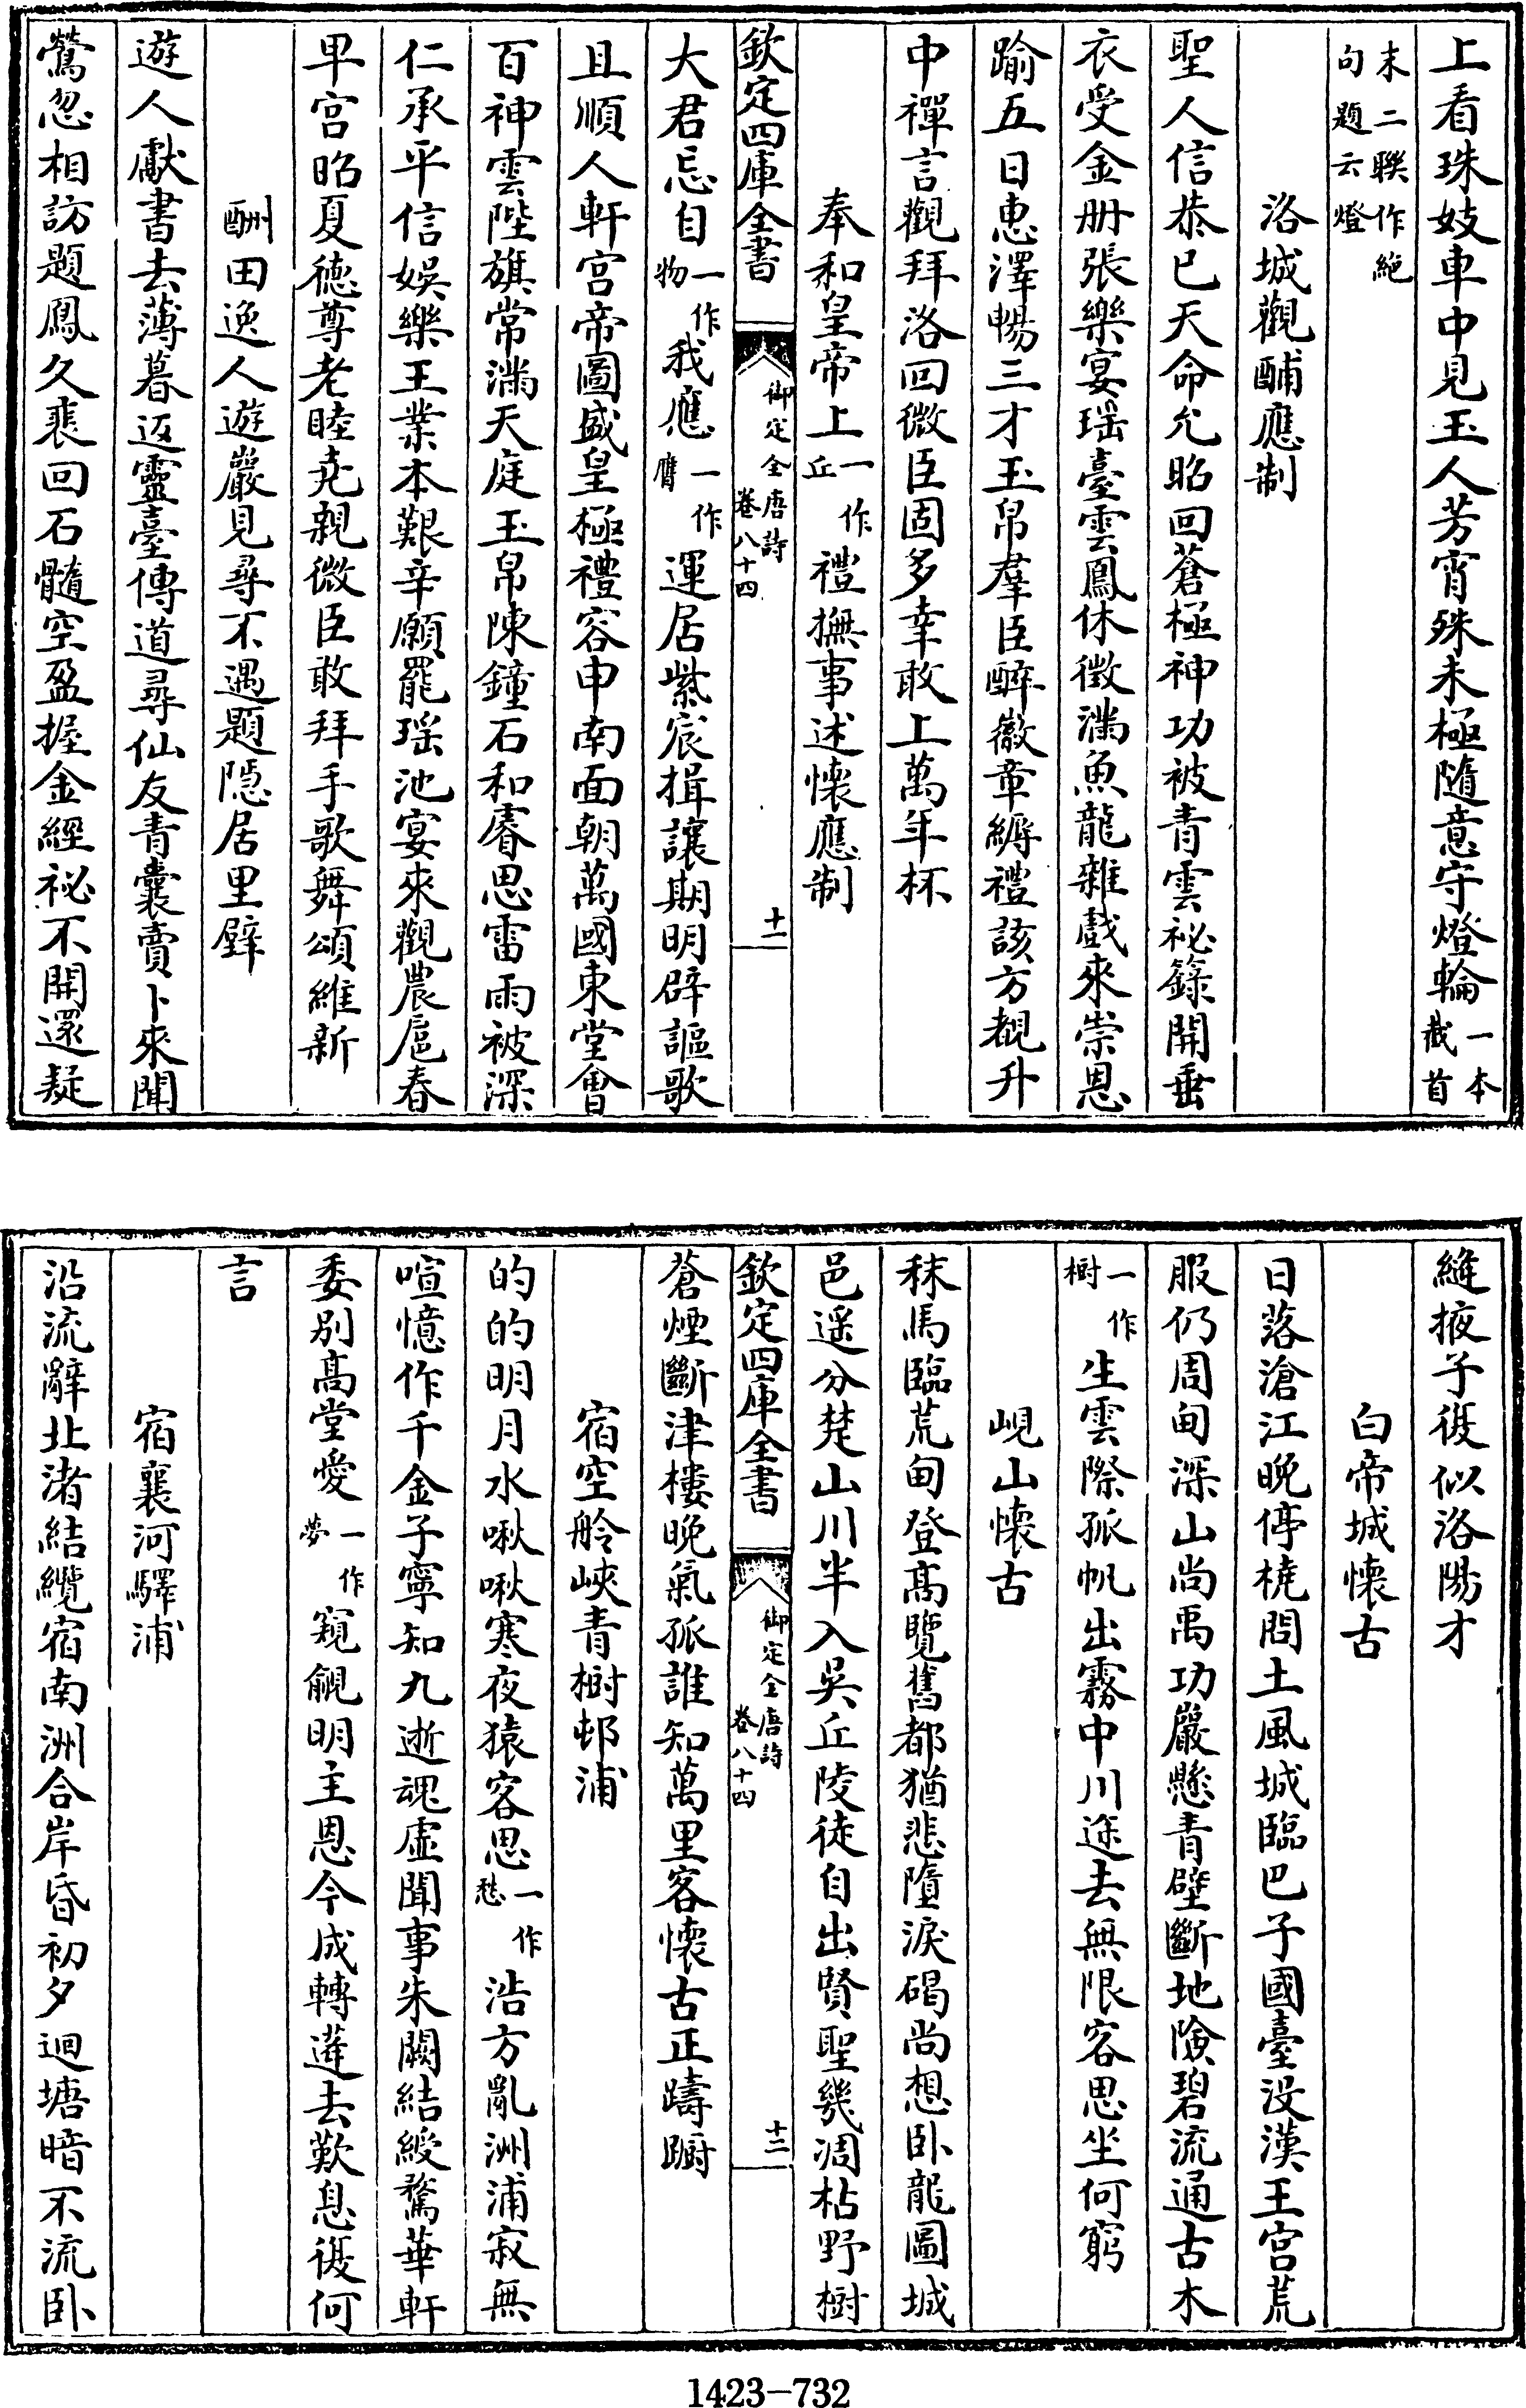 上看珠妓車中見玉人芳宵殊未極隨意守燈輪一本截首
末二聯作絶句題云燈
洛城觀酺應制
聖人信恭已天命允昭回蒼極神功被青雲祕籙開垂
衣受金册張樂宴瑶臺雲鳳休徵滿魚龍雜戲來崇恩
踰五日惠澤暢三才玉帛羣臣醉徽章縟禮該方覩升
中禪言觀拜洛回微臣固多幸敢上萬年杯
奉和皇帝上一作丘禮撫事述懷應制
欽定四庫全書
御定全唐詩
卷八十四
十一
大君忘自一作物我應一作膺運居紫宸揖讓期明辟謳歌
且順人軒宫帝圖盛皇極禮容申南面朝萬國東堂會
百神雲陛旗常滿天庭玉帛陳鐘石和睿思雷雨被深
仁承平信娱樂王業本艱辛願罷瑶池宴來觀農扈春
卑宫昭夏德尊老睦堯親微臣敢拜手歌舞頌維新
酬田逸人遊巖見尋不遇題隠居里壁
遊人獻書去薄暮返靈臺傳道尋仙友青囊賣卜來聞
鶯忽相訪題鳳久裴回石髓空盈握金經祕不開還疑
縫掖子復似洛陽才
白帝城懷古
日落滄江晚停橈問土風城臨巴子國臺没漢王宫荒
服仍周甸深山尚禹功巖懸青壁斷地險碧流通古木
一作樹生雲際孤帆出霧中川途去無限客思坐何窮
峴山懷古
秣馬臨荒甸登髙覽舊都猶悲墮淚碣尚想卧龍圖城
邑遥分楚山川半入吳丘陵徒自出賢聖幾凋枯野樹
欽定四庫全書
御定全唐詩
卷八十四
十二
蒼煙斷津樓晚氣孤誰知萬里客懷古正躊蹰
宿空舲峽青樹邨浦
的的明月水啾啾寒夜猿客思一作愁浩方亂洲浦寂無
喧憶作千金子寧知九逝魂虚聞事朱闕結綬騖華軒
委别髙堂愛一作夢窺覦明主恩今成轉蓬去歎息復何
言
宿襄河驛浦
沿流辭北渚結纜宿南洲合岸昏初夕迴塘暗不流卧
1423-732